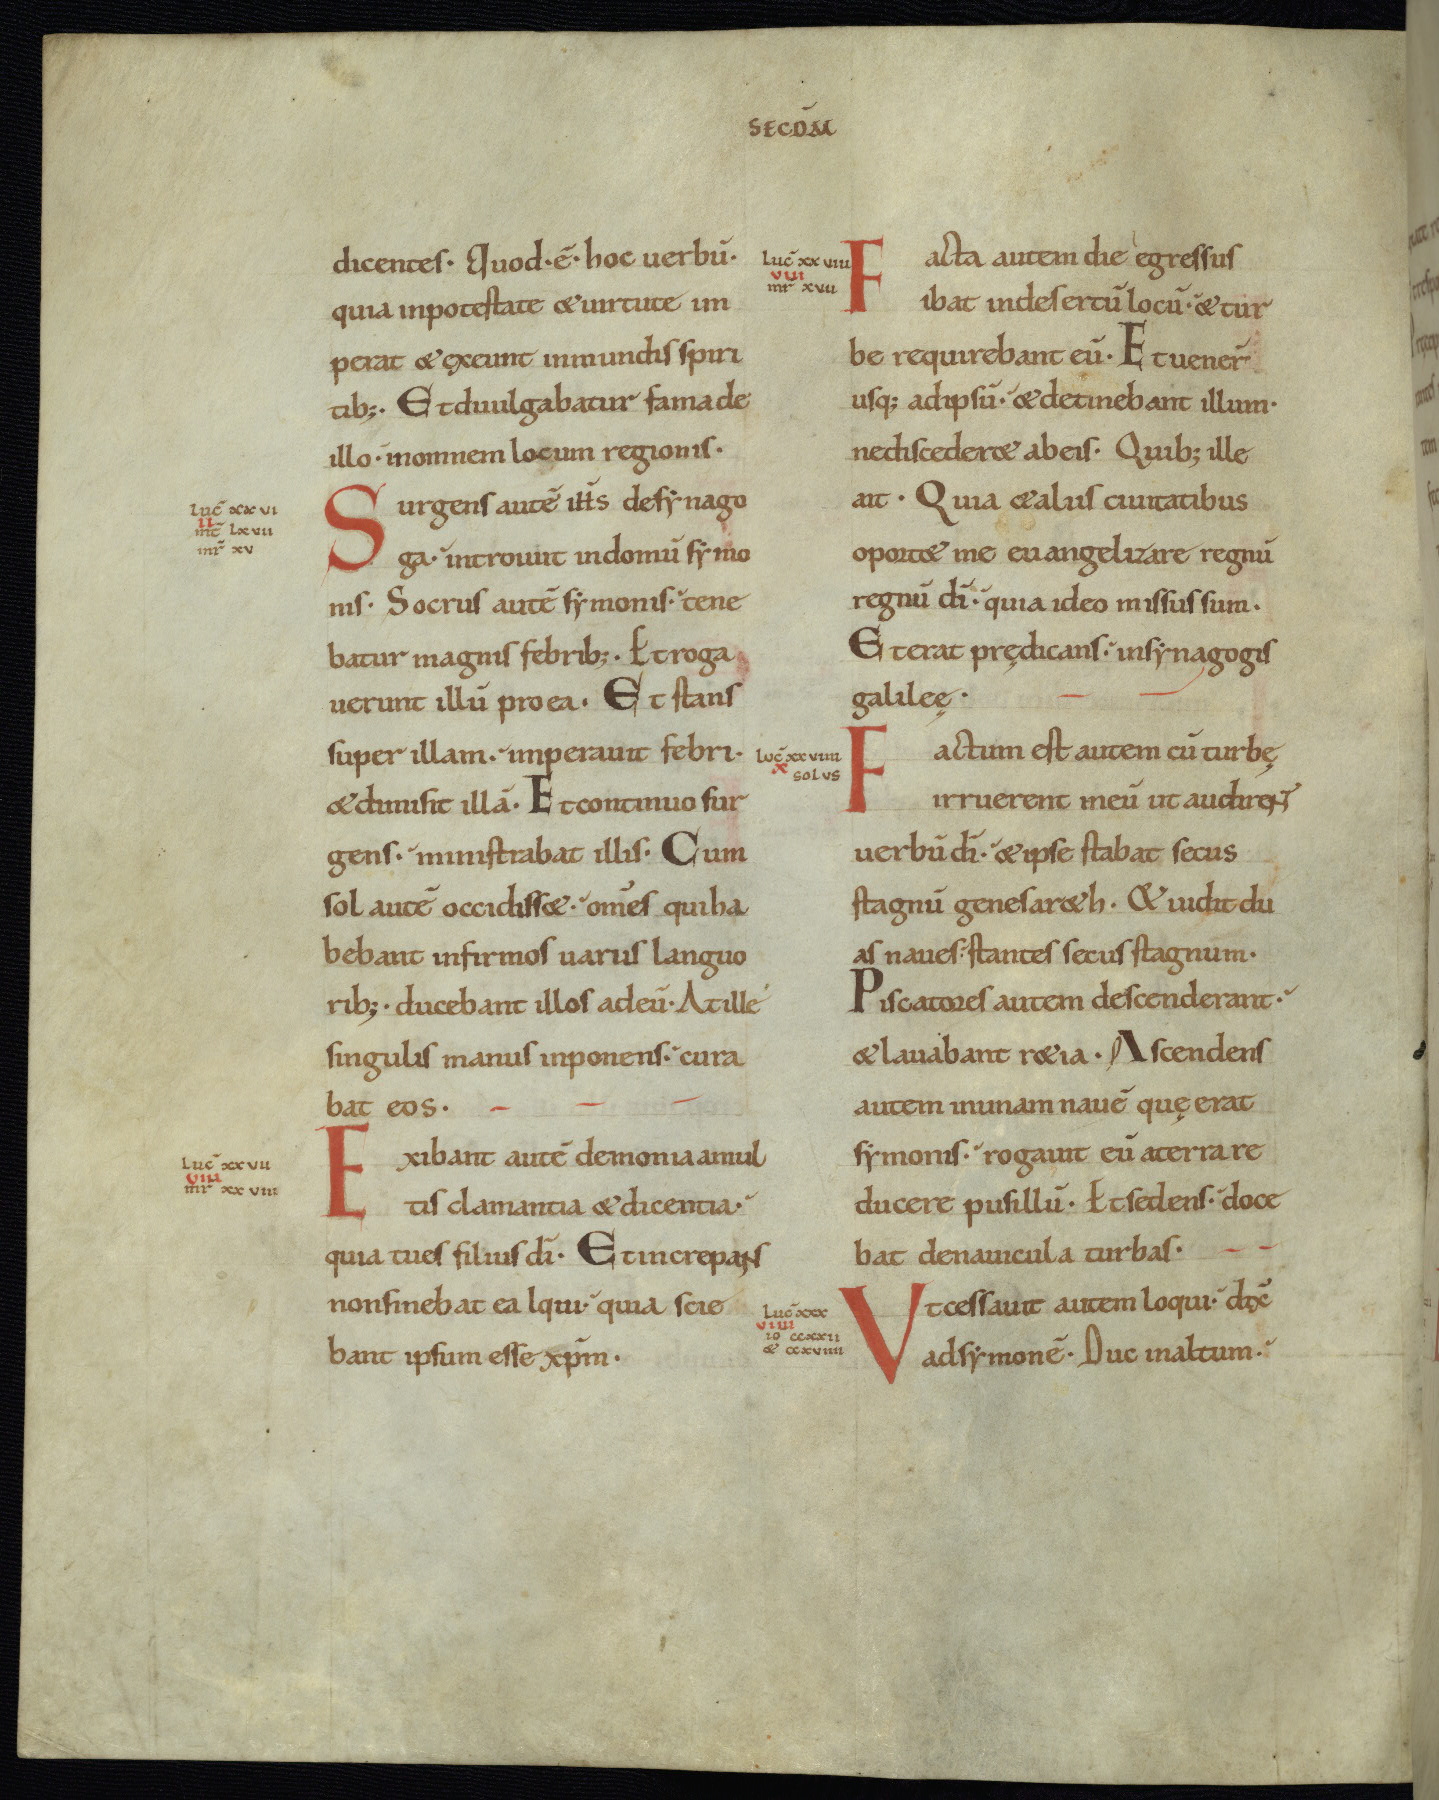 SECD̄M
dicentes· Quod·ē·hoc uerbū·
quia inpotestate & uirtute im
perat & ęxeunt inmundis spiri
tib;· Et diuulgabatur fama de
illo· inomnem locum regionis·
Luc̄ xxvi
ii
mt̄ lxvii
mr̄ xv
Surgens autē ih̄s desẏnago
ga· introiuit in domū sẏmo
nis· Socrus autē sẏmonis· tene
batur magnis febrib;· Et roga
uerunt illū pro ea· Et stans
super illam· imperauit febri·
& dimisit illā· Et continuo sur
gens· ministrabat illis· Cum
sol autē occidiss&· om̄es qui ha
bebant infirmos uariis languo
rib;· ducebant illos ad eū· At ille
singulis manus inponens· cura
bat eos·
Luc̄ xxvii
viii
mr̄ xxviii
Exibant autē demonia amul
tis clamantia & dicentia·
quia tu es filius dī· Et increpans
non sinebat ea lqui· quia scie
bant ipsum esse xp̄m·
Luc̄ xxviii
viii
mr̄ xvii
Facta autem die egressus
ibat indesertū locū· & tur
be requirebant eū· Et uener̄
usq; ad ipsū· & detinebant illum·
ne disceder& ab eis· Quib; ille
ait· Quia & aliis ciuitatibus
oport& me euangelizare regnū
regnū dī· quia ideo missus sum·
Et erat prędicans· in sẏnagogis
galileę·
Luc̄ xxviiii
x solus
Factum est autem cū turbę
irruerent ineū ut audirent
uerbū dī· & ipse stabat secus
stagnū genesar&h· & uidit du
as naues· stantes secus stagnum·
Piscatores autem descenderant·
& lauabant r&ia· Ascendens
autem in unam nauē quę erat
sẏmonis· rogauit eū aterra re
ducere pusillū· Et sedens· doce
bat denauicula turbas·
Luc̄ xxx
viiii
io ccxxii
& ccxviiii
Vt cessauit autem loqui· dix̄
ad sẏmonē· Duc in altum·